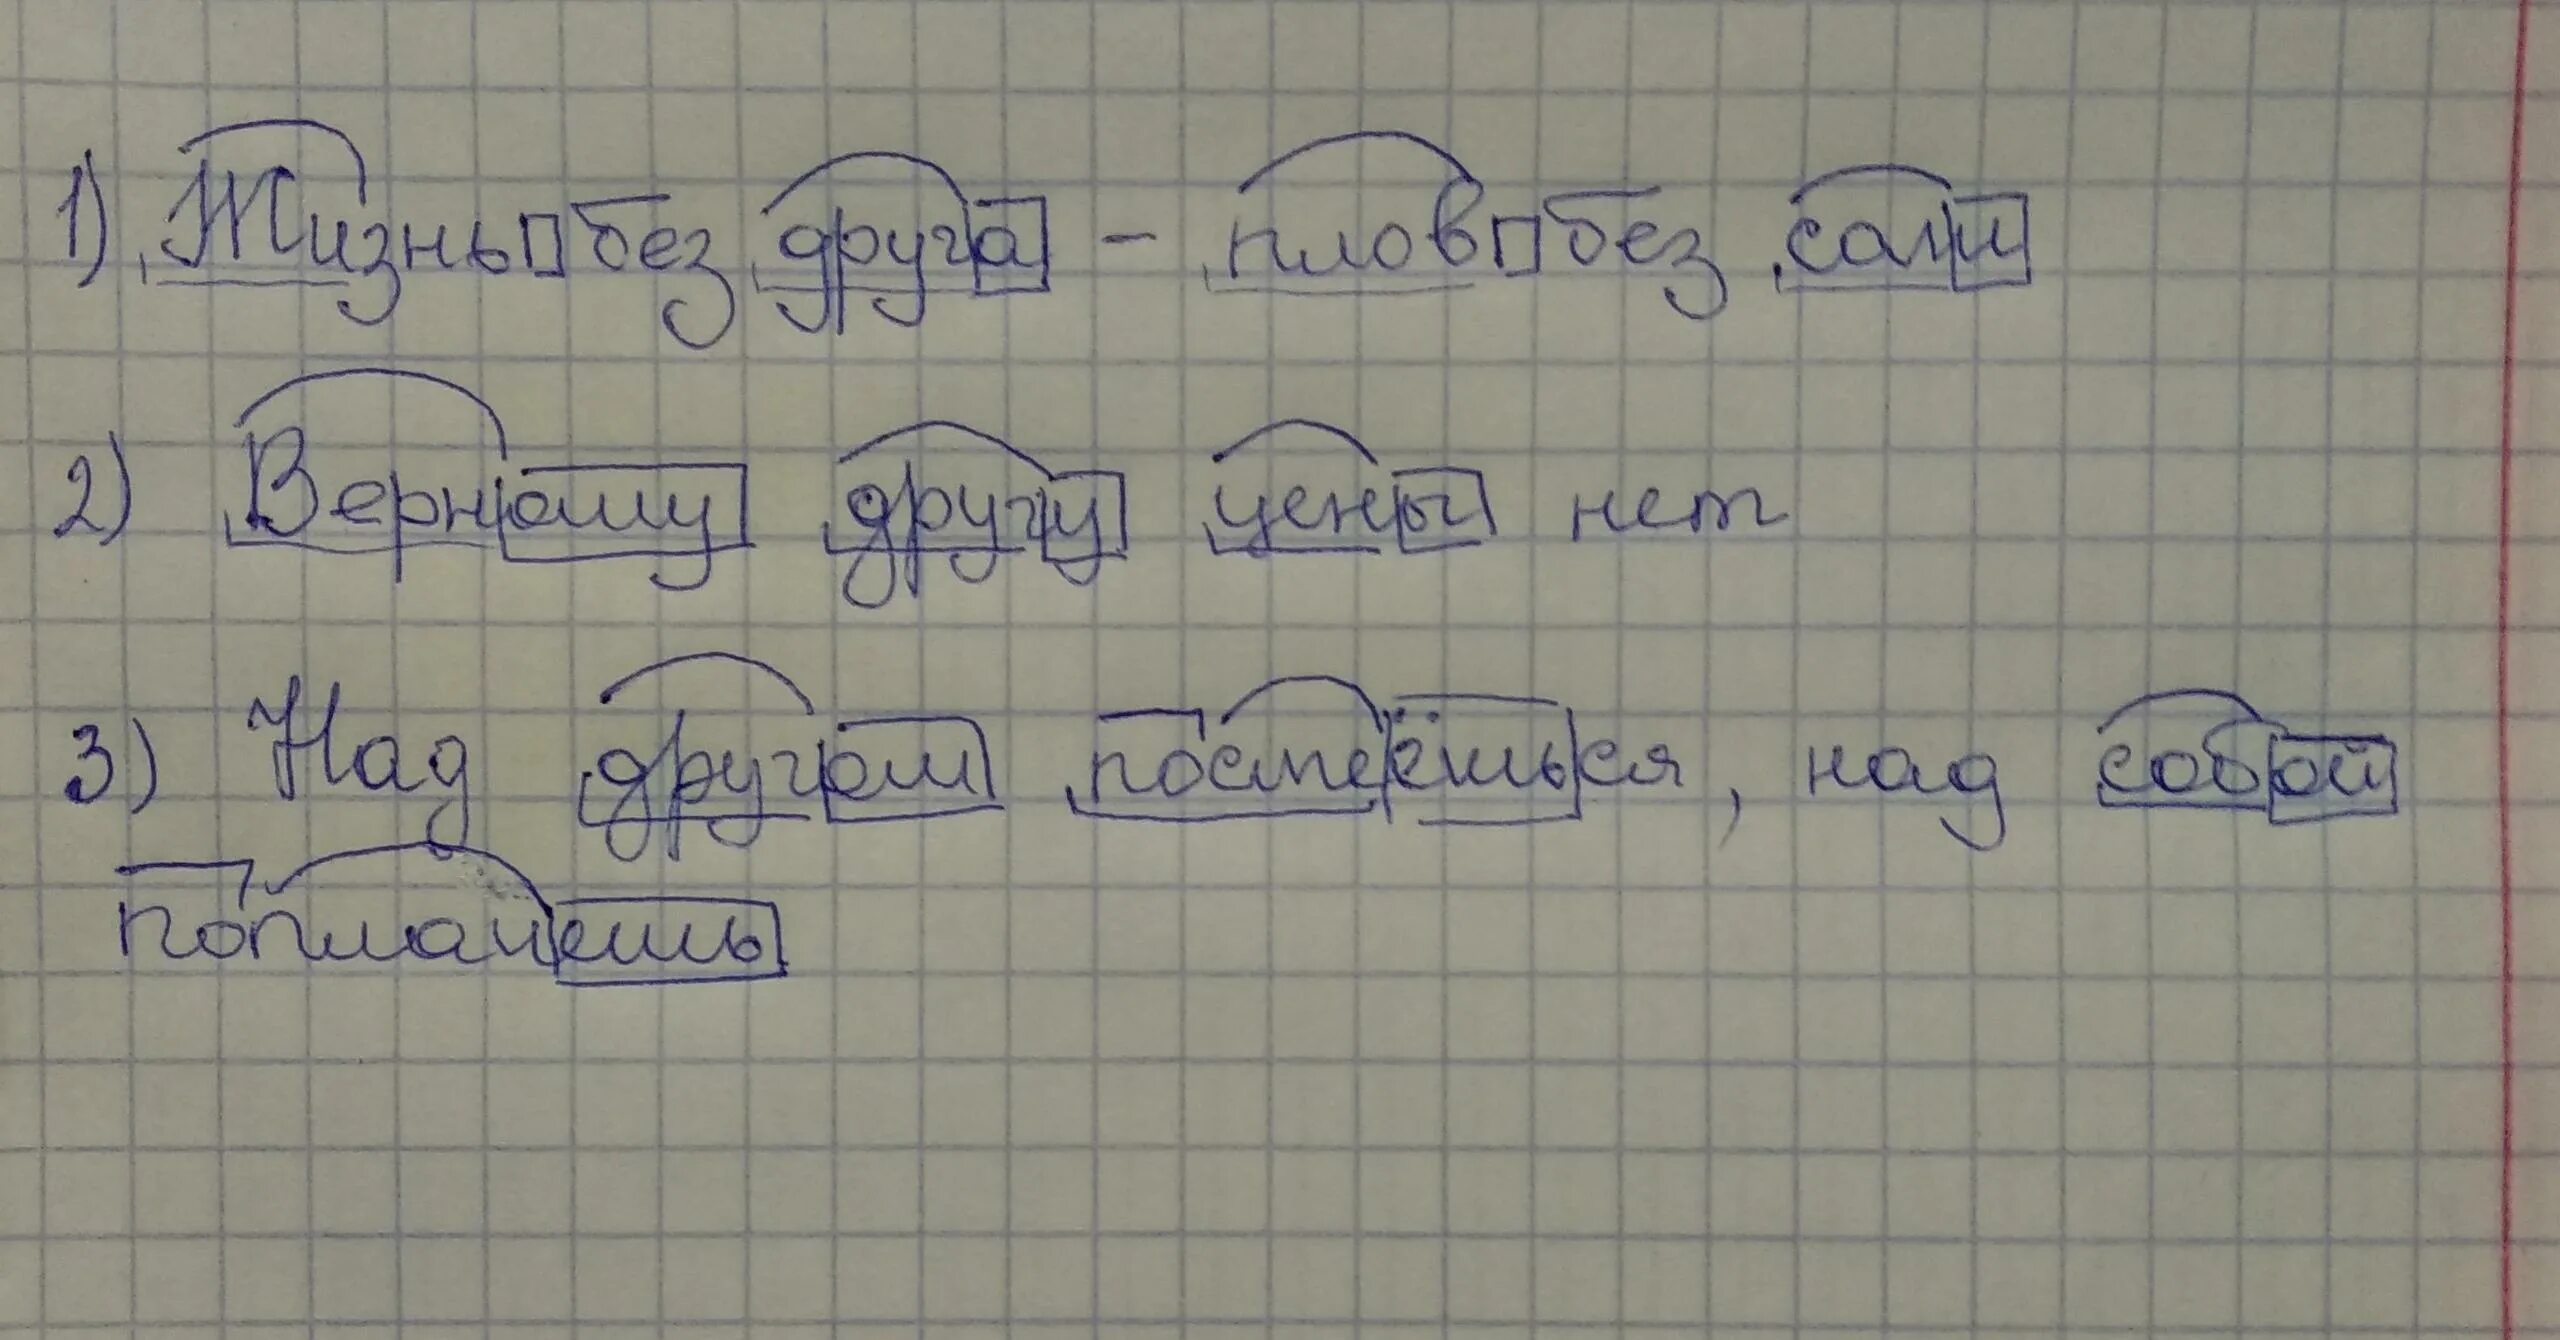 1) Жизнь без друга - плов без соли
2) Верному другу цены нет
3) Над другом посмеёшься, над собой
поплачешь